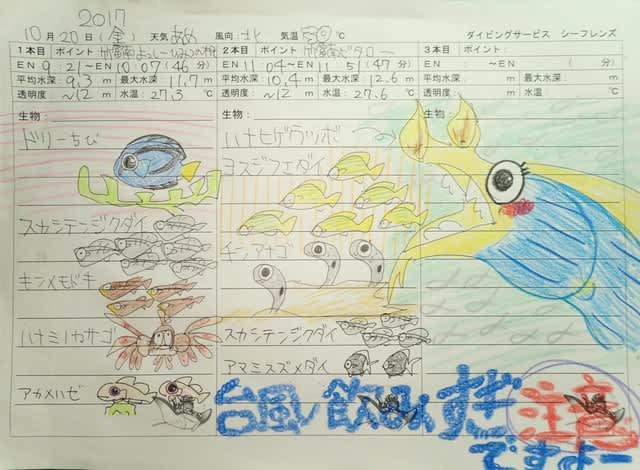 2017
10月20日(金) 天気 あめ 風向:北 気温 ℃ ダイビングサービス シーフレンズ
1本目 ポイント 2本目 ポイント 3本目 ポイント
EN 9:21~EN 10:07(46分) EN 11:04~EN 11:51(47分) EN : ~EN : ( 分)
平均水深:9.3m 最大水深:11.7m 平均水深:10.4m 最大水深:12.6m 平均水深: m 最大水深: m
透明度:~12m 水温:27.3℃ 透明度:~12m 水温:27.6℃ 透明度: m 水温: ℃
生物: 生物: 生物:
ドリーちび ハナヒゲウツボ
ヨスジフエダイ
スカシテンジクダイ
チンアナゴ
キンメモドキ
ハナミノカサゴ スカシテンジクダイ
アマミスズメダイ
アカメハゼ
台風ノ飲みすぎ注意
ですよー